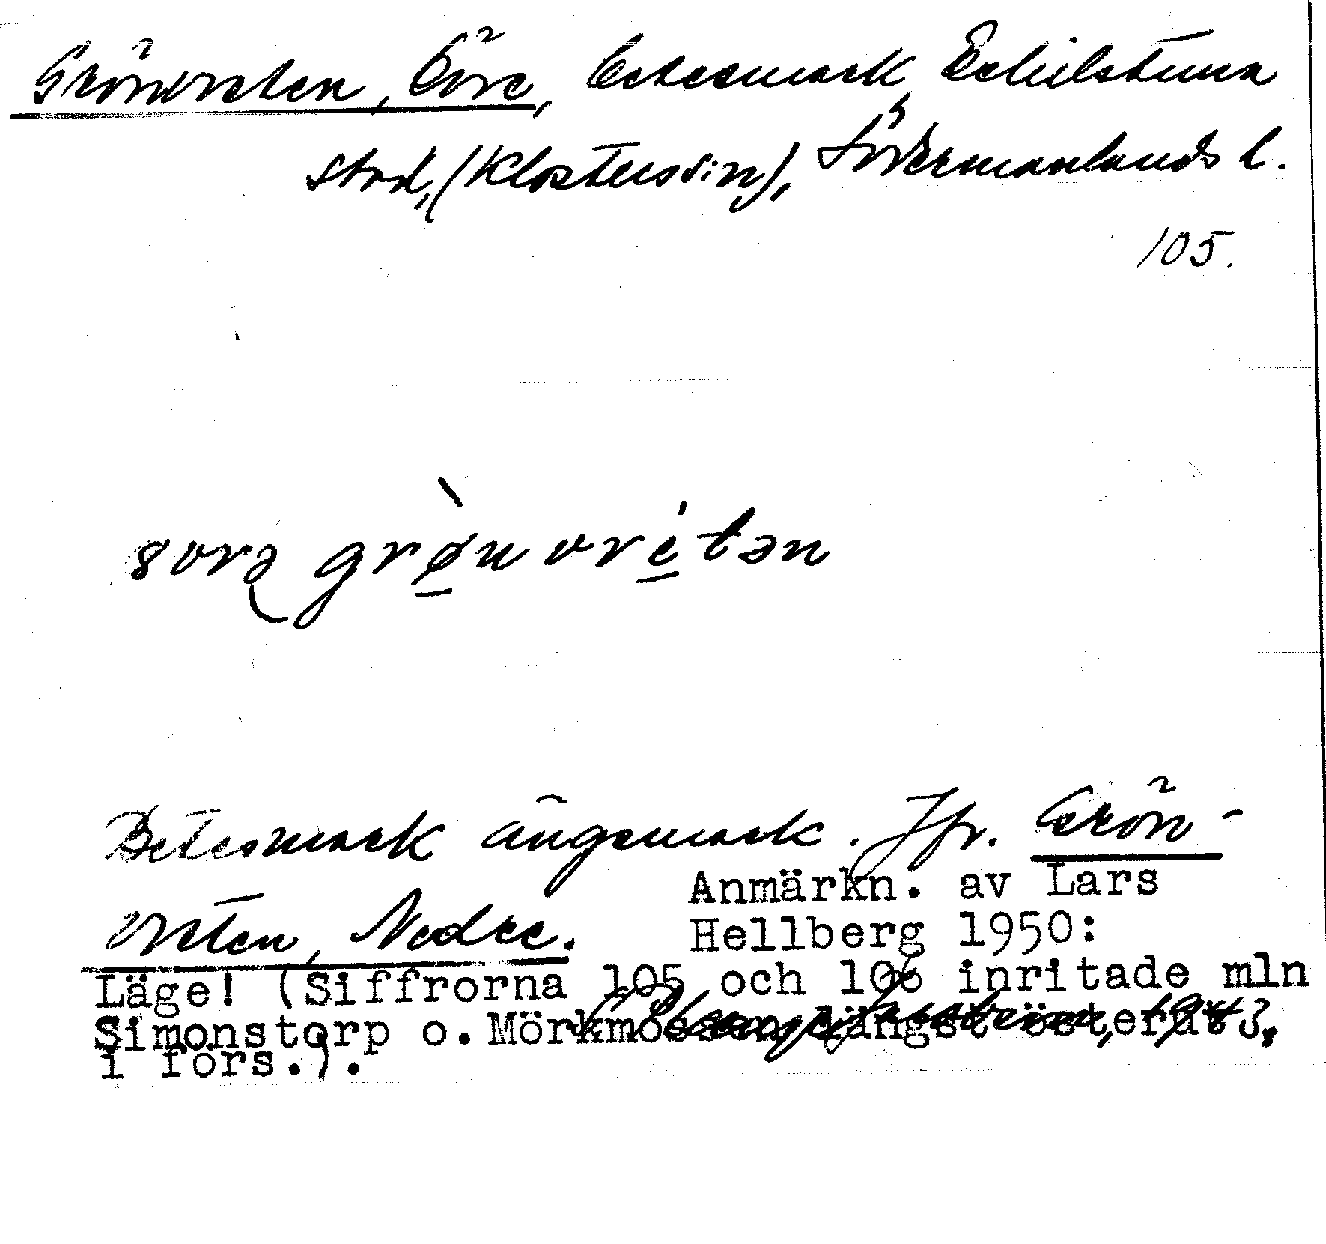 Grönvreten, Övre, Betesmark, Eskilstuna
stad, (Klosters sn), Södermanlands l.
105.
övrə grø̀nvre̍tən
Betesmark ängsmark. Jfr. Grön-
vreten, Nedre.
Anmärkn. av Lars
Hellberg 1950:
Läge! (Siffrorna 105 och 106 inritade mln
Simonstorp o. Mörkmossen längst österut
i förs.).
1943.